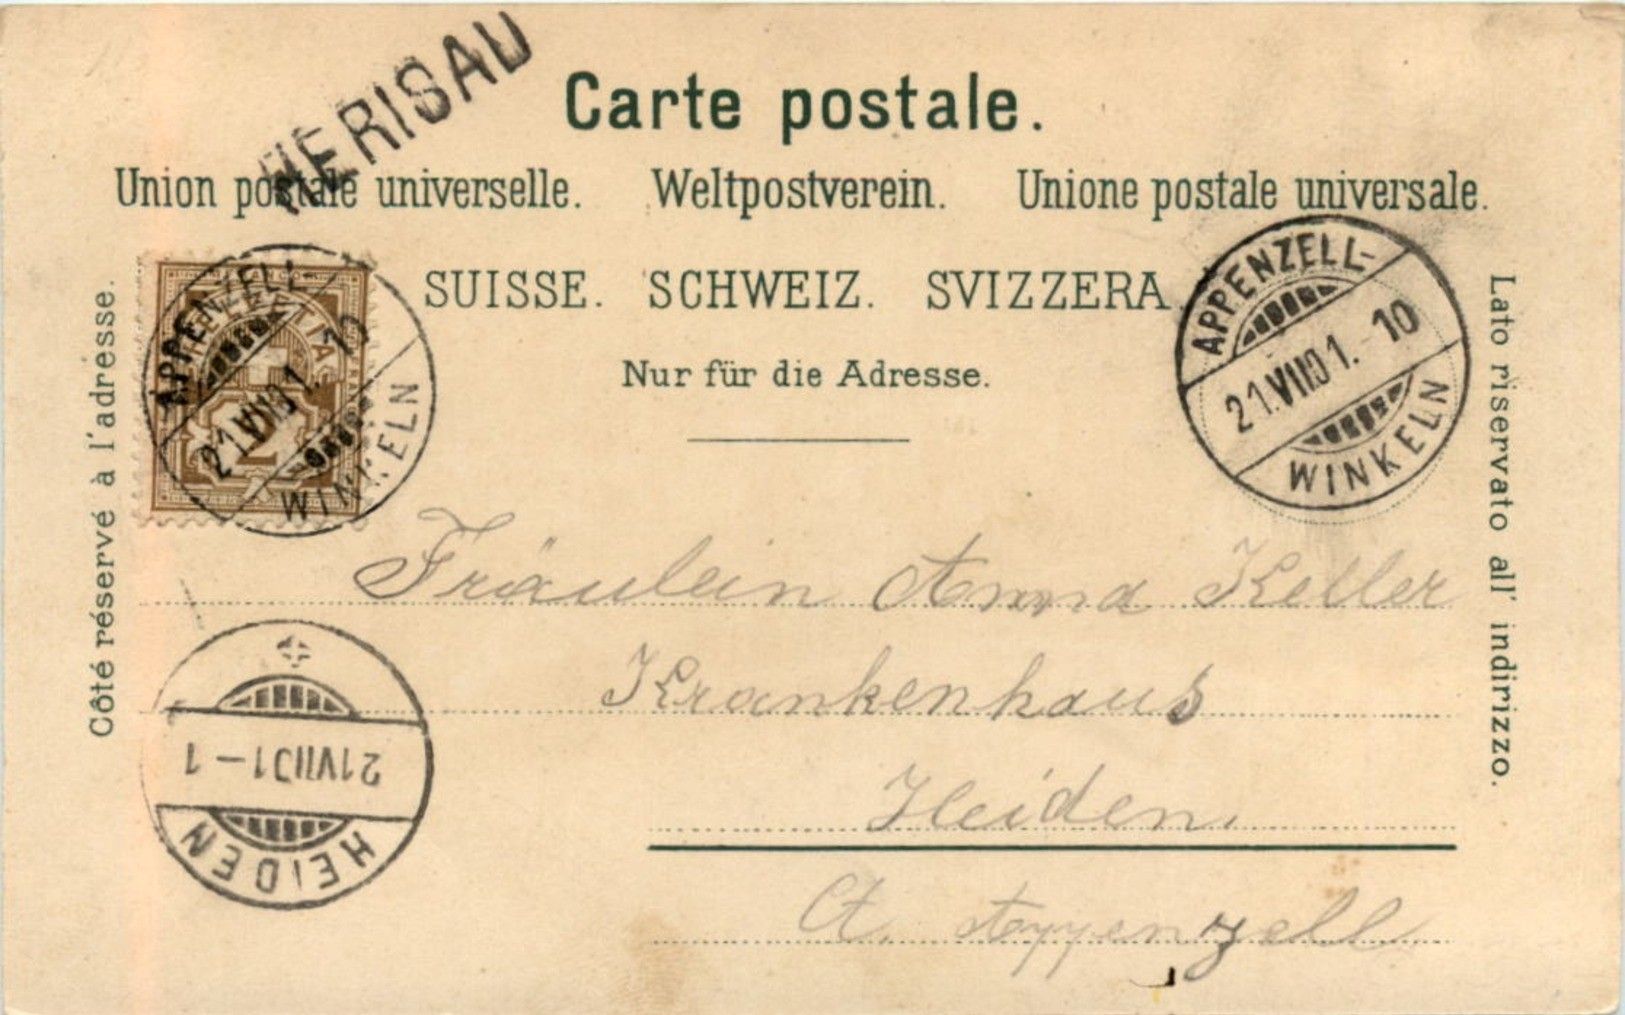 HERISAU
Carte postale.
Union postale universelle. Weltpostverein. Unione postale universale.
SUISSE. SCHWEIZ. SVIZZERA
Nur für die Adresse.
Côté réservé à l'adresse.
Lato riservato all' indirizzo.
APPENZELL-
21.VII01. 10
WINKELN
APPENZELL-
21.VII01.-10
WINKELN
Fräulein Anna Keller
Krankenhaus
Heiden.
Ct. Appenzell
HEIDEN
21VII01-1